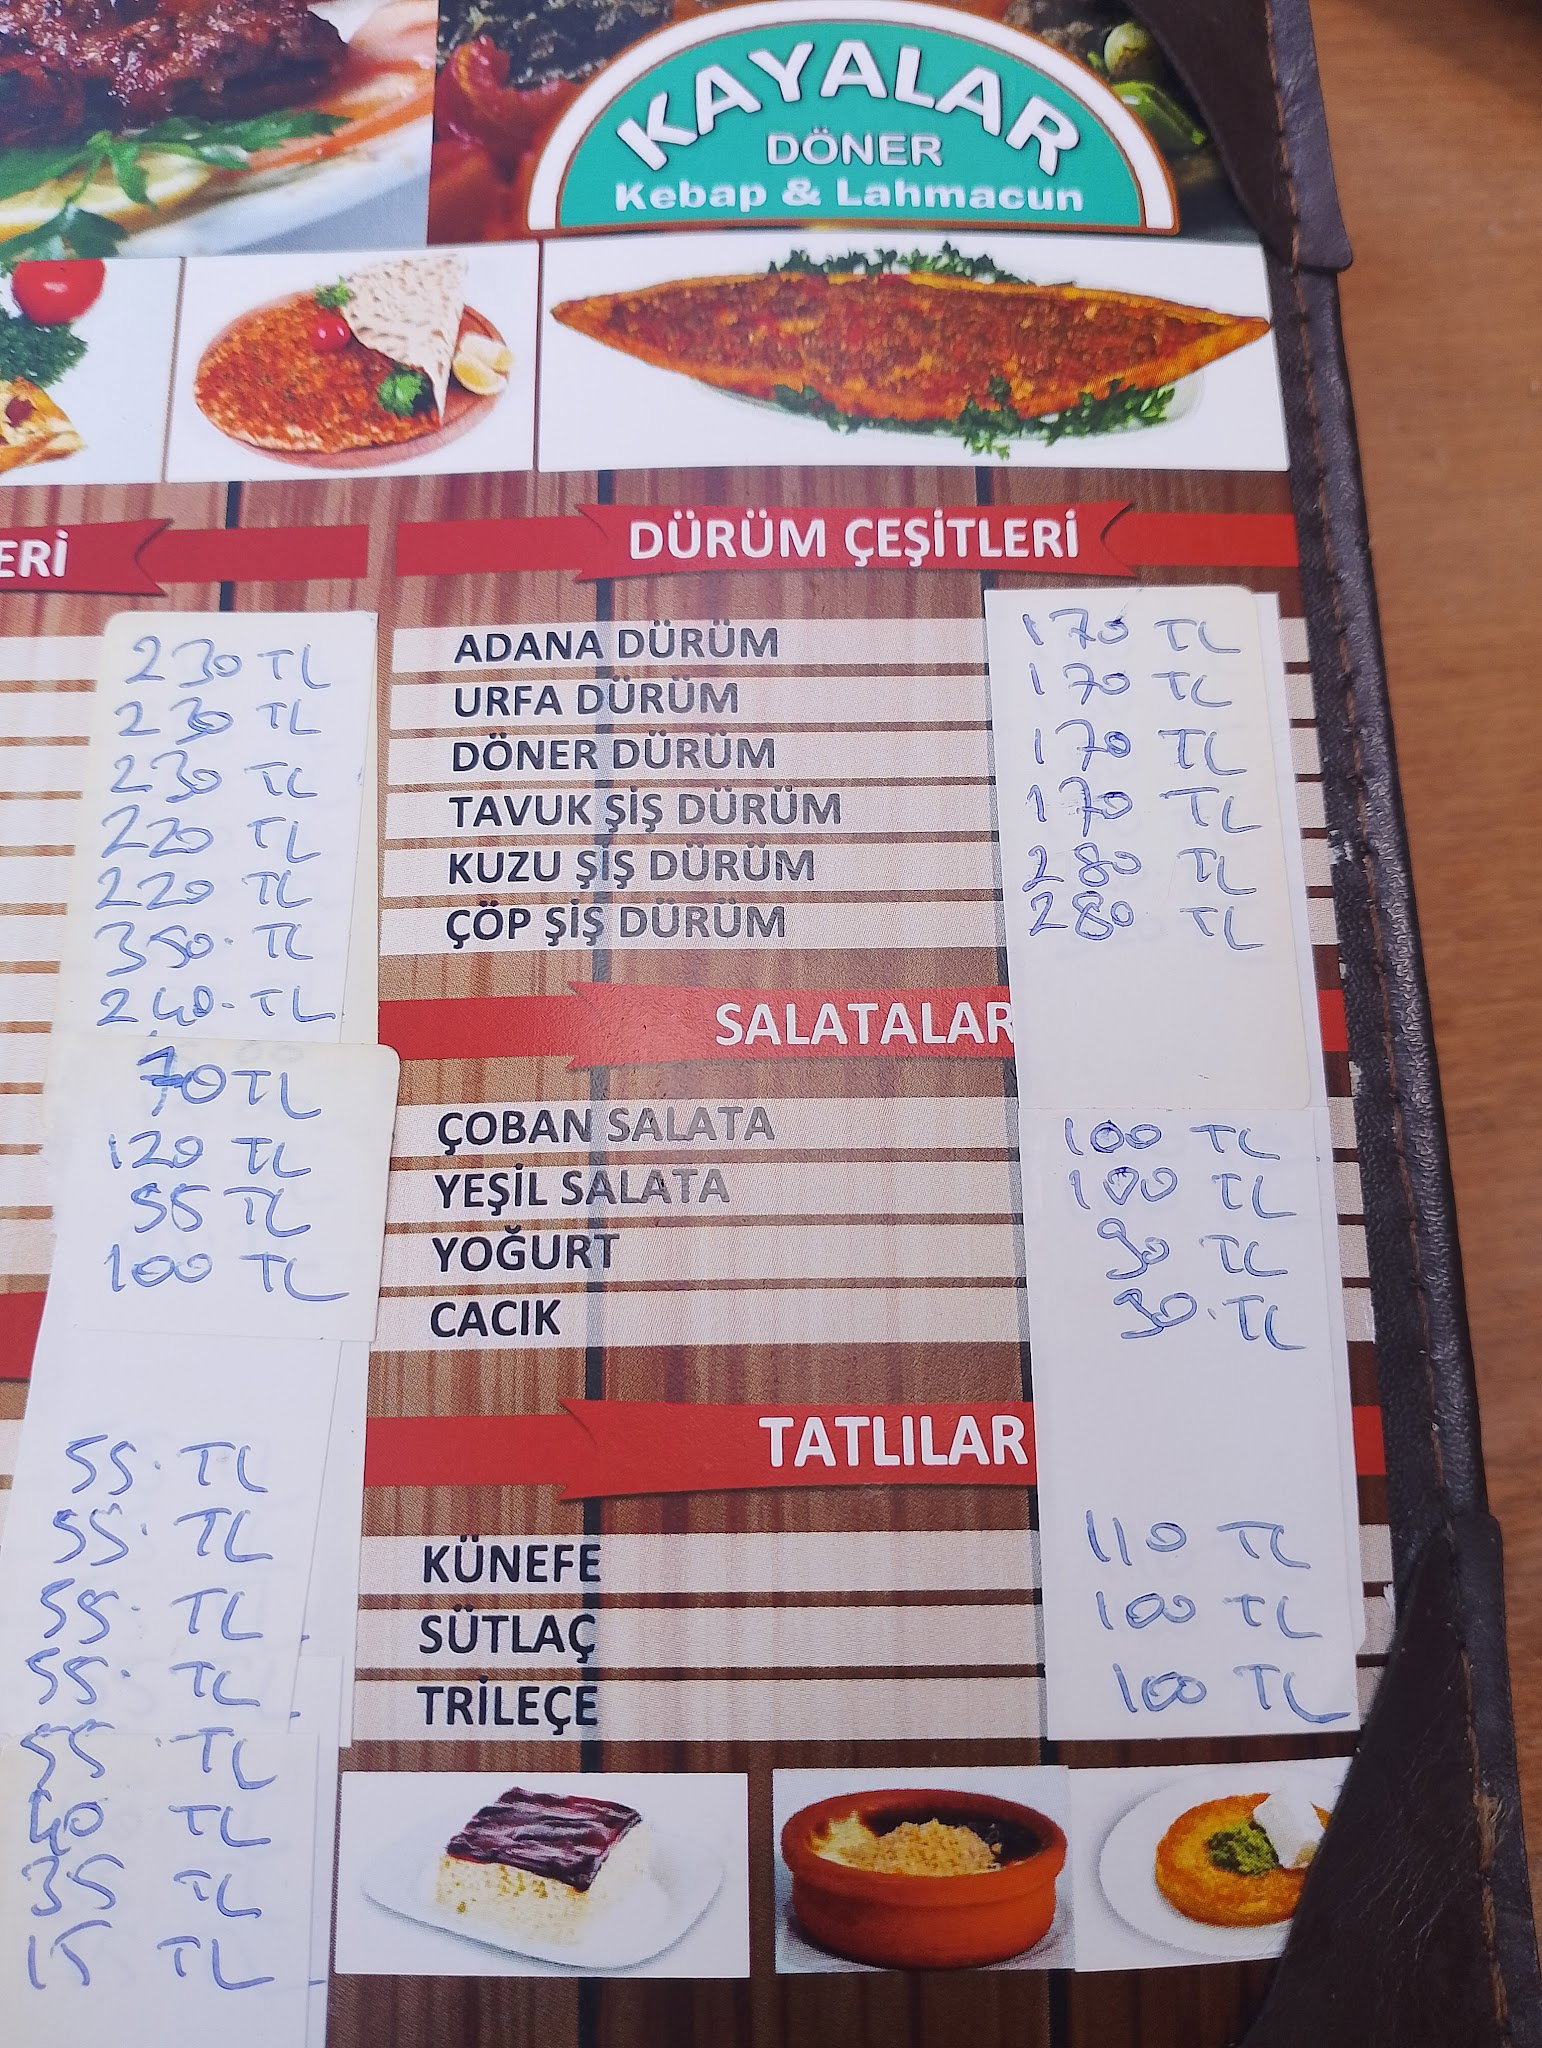 KAYALAR
DÖNER
Kebap & Lahmacun
ERİ
230 TL
230 TL
230 TL
220 TL
220 TL
350. TL
240. TL
70 TL
120 TL
55 TL
100 TL
55. TL
55. TL
55. TL
55. TL
55. TL
40 TL
35 TL
15 TL
DÜRÜM ÇEŞİTLERİ
ADANA DÜRÜM 170 TL
URFA DÜRÜM 170 TL
DÖNER DÜRÜM 170 TL
TAVUK ŞİŞ DÜRÜM 170 TL
KUZU ŞİŞ DÜRÜM 280 TL
ÇÖP ŞİŞ DÜRÜM 280 TL
SALATALAR
ÇOBAN SALATA 100 TL
YEŞİL SALATA 100 TL
YOĞURT 90 TL
CACIK 90. TL
TATLILAR
KÜNEFE 110 TL
SÜTLAÇ 100 TL
TRİLEÇE 100 TL